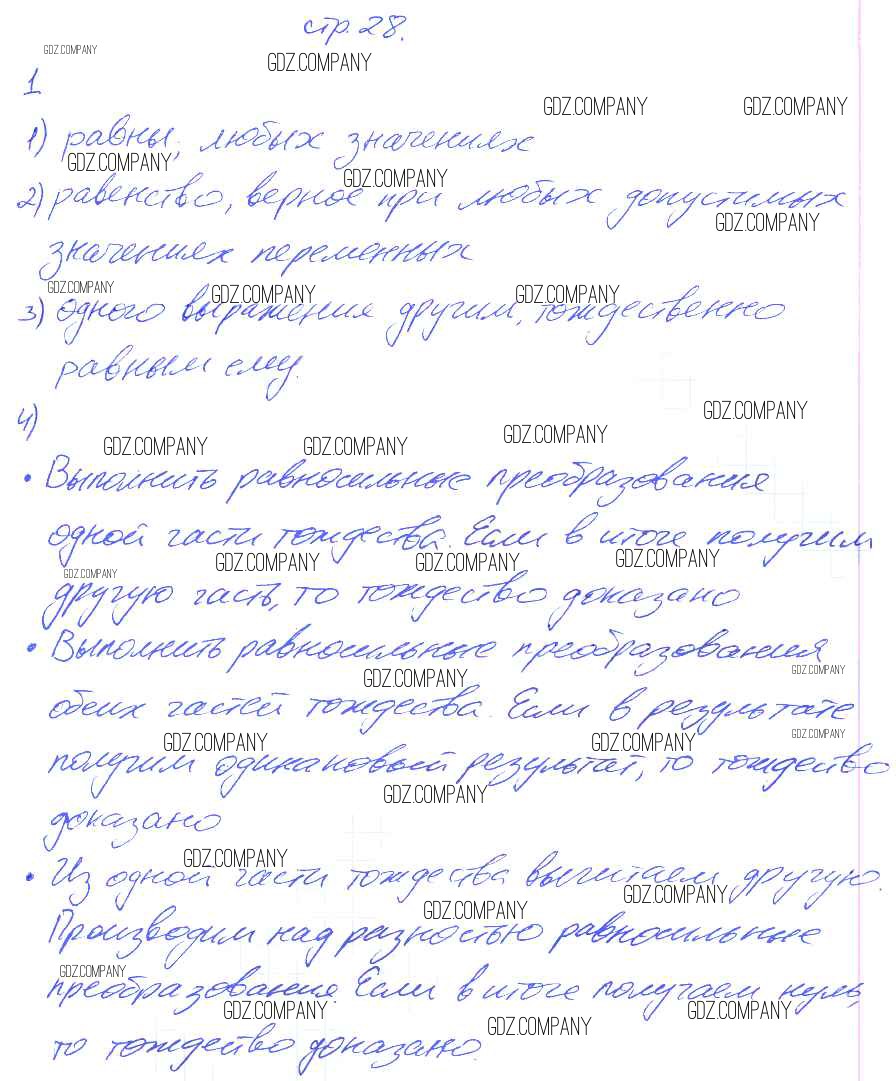 стр. 28.
GDZ.COMPANY
GDZ.COMPANY
1
GDZ.COMPANY GDZ.COMPANY
1) равны; любых значениях
GDZ.COMPANY
GDZ.COMPANY
2) равенство, верное при любых допустимых
GDZ.COMPANY
значениях переменных
GDZ.COMPANY GDZ.COMPANY GDZ.COMPANY
3) одного выражения другим, тождественно
равным ему.
GDZ.COMPANY
4)
GDZ.COMPANY GDZ.COMPANY GDZ.COMPANY
• Выполнить равносильные преобразования
одной части тождества. Если в итоге получим
GDZ.COMPANY GDZ.COMPANY GDZ.COMPANY
GDZ.COMPANY
другую часть, то тождество доказано
• Выполнить равносильные преобразования
GDZ.COMPANY GDZ.COMPANY
обеих частей тождества. Если в результате
GDZ.COMPANY GDZ.COMPANY GDZ.COMPANY
получим одикановый результат, то тождество
GDZ.COMPANY
доказано
GDZ.COMPANY
• Из одной части тождества вычитаем другую.
GDZ.COMPANY GDZ.COMPANY
Производим над разностью равносильные
GDZ.COMPANY
преобразования. Если в итоге получаем нуль,
GDZ.COMPANY GDZ.COMPANY GDZ.COMPANY
то тождество доказано.